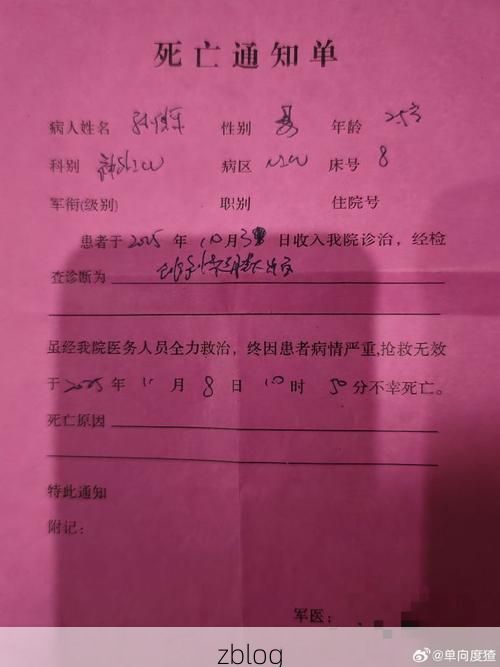 死亡通知单
病人姓名 孙 性别 男 年龄 25岁
科别 神外ICU 病区 NICU 床号 8
军衔(级别) 职别 住院号
患者于 2025 年 10 月 日收入我院诊治，经检
查诊断为
虽经我院医务人员全力救治，终因患者病情严重,抢救无效
于 2025 年 11 月 8 日 10 时 50 分不幸死亡。
死亡原因
特此通知
附记：
军医：
@单向度猹
zblog